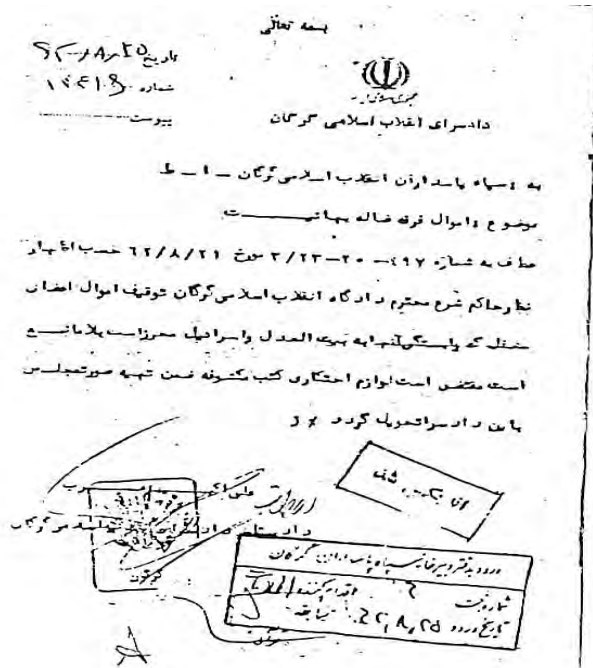 بسمه تعالی
تاریخ ۶۲/۸/۲۵
شماره
پیوست
جمهوری اسلامی ایران
دادسرای انقلاب اسلامی گرگان
به : سپاه پاسداران انقلاب اسلامی گرگان - ا - ط
موضوع : اموال فرقه ضاله بهائیت
عطف به شماره ۴۹۷-۲۰-۲/۲۳ مورخ ۶۲/۸/۲۱ حسب اظهار
نظر حاکم شرع محترم دادگاه انقلاب اسلامی گرگان توقیف اموال اعضای
محفل که وابستگی آنها به بیت العدل و اسرائیل محرز است بلامانع
است مقتضی است لوازم احتکاری کتب مکشوفه ضمن تهیه صورتمجلس
باین دادسرا تحویل گردد
علی
دادستان دادسرای انقلاب اسلامی گرگان
ورود بدفتر دبیرخانه سپاه پاسداران گرگان
شماره ثبت
اقدام کننده
تاریخ ورود ۶۲/۸/۲۵